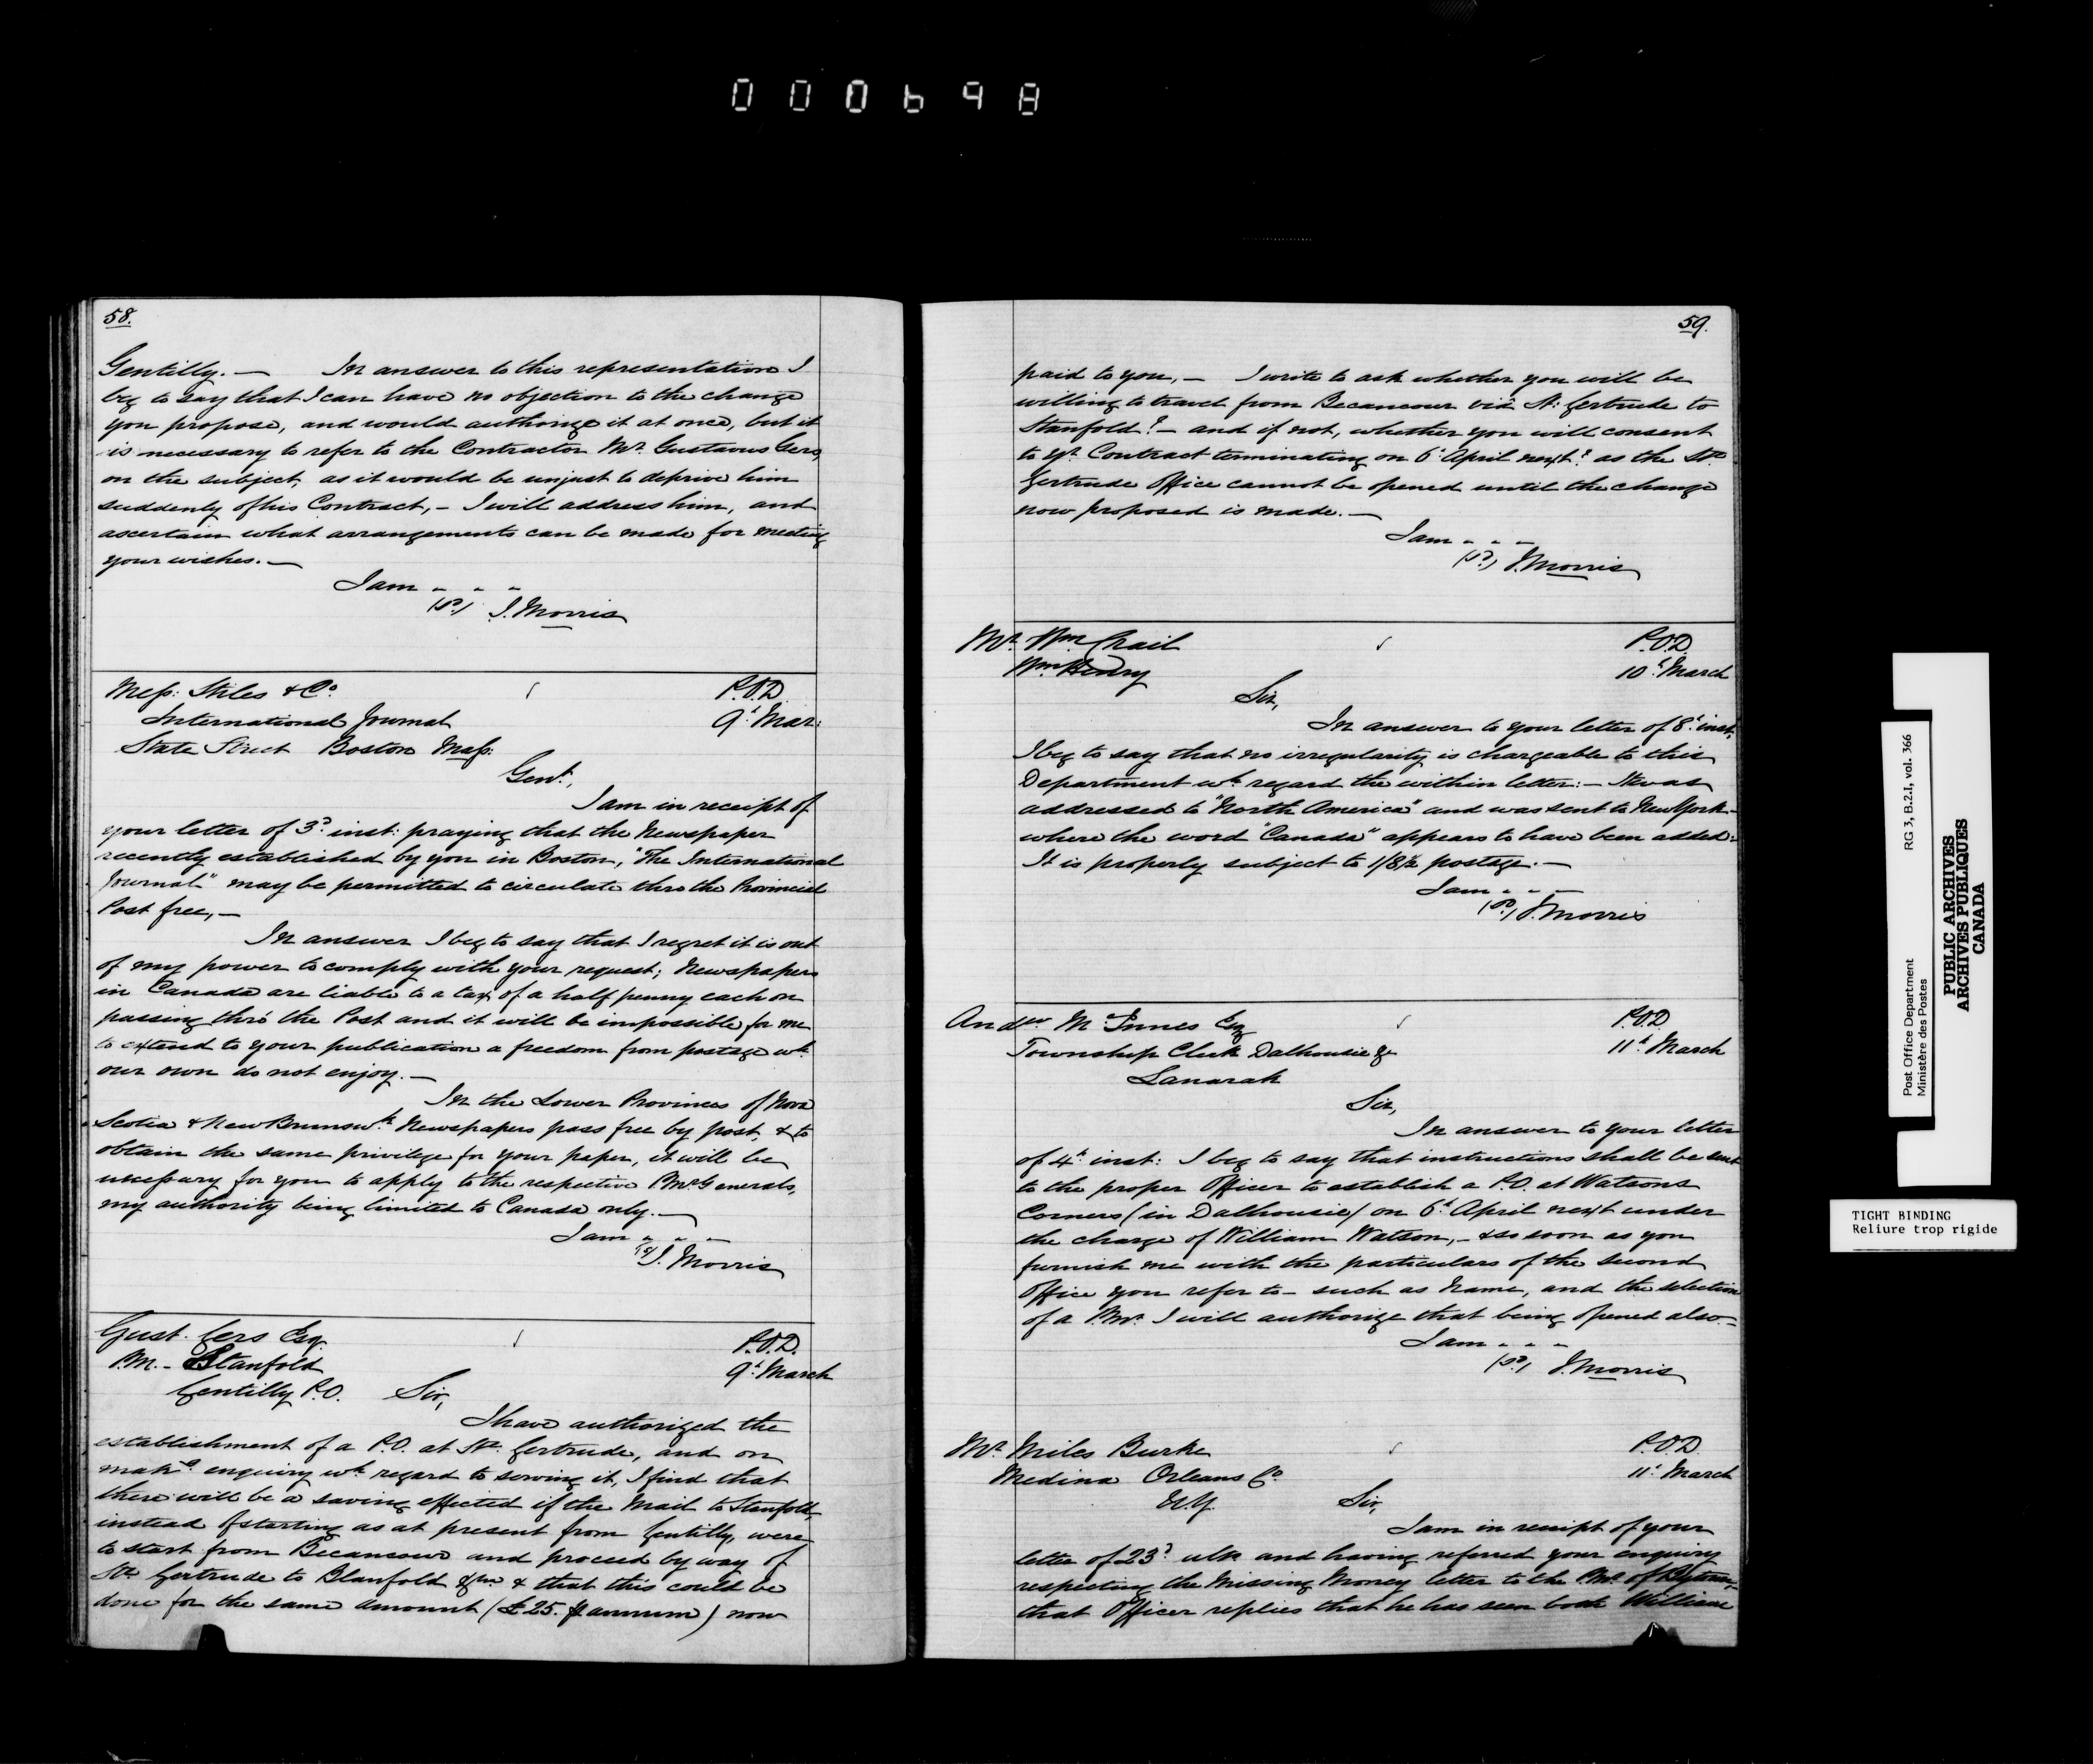 000698
58.
Gentilly. — In answer to this representation I
beg to say that I can have no objection to the change
you propose, and would authorize it at once, but it
is necessary to refer to the Contractor Mr. Gustavus Cers,
on the subject, as it would be unjust to deprive him
suddenly of his Contract, – I will address him, and
ascertain what arrangements can be made for meeting
your wishes. —
I am " " "
(Sd.) J. Morris
Mess: Stiles & Co.
P.O.D.
International Journal
9th Mar:
State Street Boston Mass:
Gent.,
I am in receipt of
your letter of 3d inst: praying that the Newspaper
recently established by you in Boston, "The International
Journal" may be permitted to circulate thro the Provincial
Post free, —
In answer I beg to say that I regret it is out
of my power to comply with your request; Newspapers
in Canada are liable to a tax of a half penny each on
passing thro' the Post and it will be impossible for me
to extend to your publication a freedom from postage wh
our own do not enjoy. —
In the Lower Provinces of Nova
Scotia & New Brunswk. Newspapers pass free by post, & to
obtain the same privilege for your paper, it will be
necessary for you to apply to the respective P.Mr. Generals,
my authority being limited to Canada only. —
I am " " "
(Sd) J. Morris
Gust. Cers Esq.
P.O.D.
P.M. - Stanfold
9th March
Gentilly P.O. Sir,
I have authorized the
establishment of a P.O. at Ste. Gertrude, and on
makg. enquiry wh regard to serving it, I find that
there will be a saving effected if the Mail to Stanfold,
instead of starting as at present from Gentilly, were
to start from Becancour and proceed by way of
Ste. Gertrude to Blanfold & that this could be
done for the same amount (£25. p annum) now
59.
paid to you, — I write to ask whether you will be
willing to travel from Becancour viâ St: Gertrude to
Stanfold? – and if not, whether you will consent
to yr. Contract terminating on 6th April next? as the Ste.
Gertrude Office cannot be opened until the change
now proposed is made. —
I am " " "
(Sd.) J. Morris
Mr. Wm. Chail
P.O.D.
Wm. Henry
10th March
Sir,
In answer to your letter of 8th inst.
I beg to say that no irregularity is chargeable to this
Department wh regard the within letter: – It was
addressed to "North America" and was sent to New York
where the word "Canada" appears to have been added:
It is properly subject to 1/8½ postage. —
I am " " "
(Sd.) J. Morris
Andw. McInnes Esq
P.O.D.
Township Clerk Dalhousie &c
11th March
Lanarak
Sir,
In answer to your letter
of 4th inst: I beg to say that instructions shall be sent
to the proper Officer to establish a P.O. at Watsons
Corners (in Dalhousie) on 6th April next under
the charge of William Watson, – & so soon as you
furnish me with the particulars of the second
Office you refer to – such as Name, and the selection
of a P.Mr. I will authorize that being opened also –
I am " " "
(Sd.) J. Morris
Mr. Miles Burke
P.O.D.
Medina Orleans Co.
11th March
N.Y. Sir,
I am in receipt of your
letter of 23d ulto and having referred your enquiry
respecting the Missing Money letter to the P.Mr. of Bytown,
that Officer replies that he has seen both William
Post Office Department
Ministère des Postes
RG 3, B.2.I, vol. 366
PUBLIC ARCHIVES
ARCHIVES PUBLIQUES
CANADA
TIGHT BINDING
Reliure trop rigide